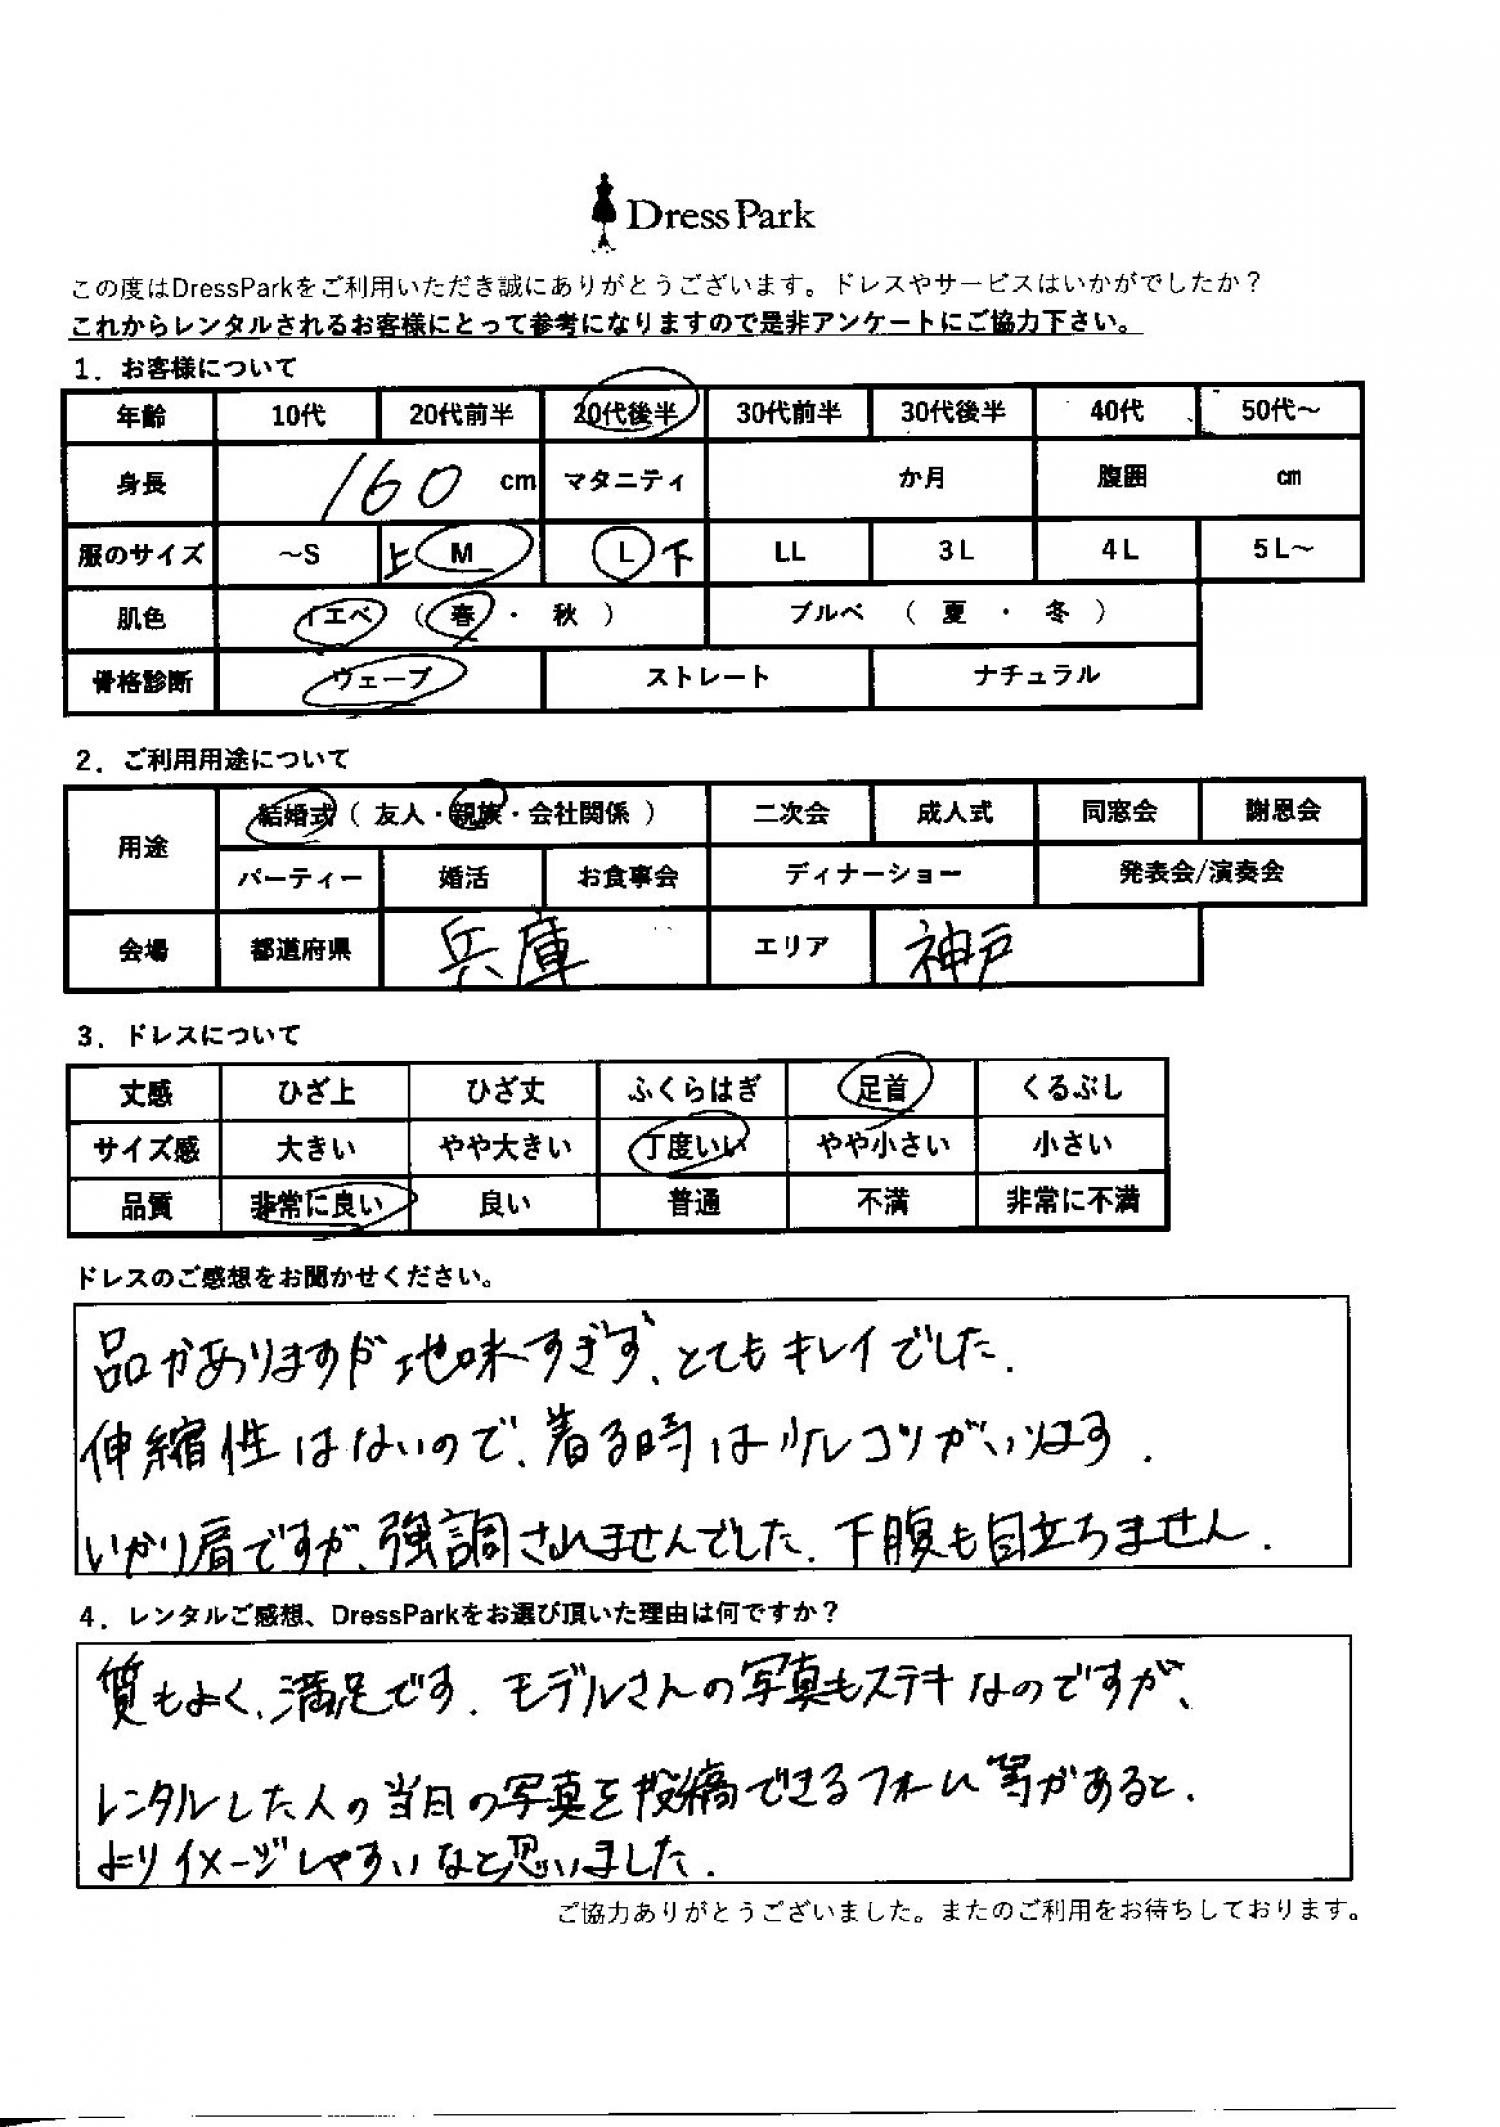 DressPark
この度はDressParkをご利用いただき誠にありがとうございます。ドレスやサービスはいかがでしたか?
これからレンタルされるお客様にとって参考になりますので是非アンケートにご協力下さい。
1. お客様について
年齢 10代 20代前半 20代後半 30代前半 30代後半 40代 50代~
身長 160 cm マタニティ か月 腹囲 cm
服のサイズ ~S 上 M L 下 LL 3L 4L 5L~
肌色 イエベ ( 春 ・ 秋 ) ブルベ ( 夏 ・ 冬 )
骨格診断 ウェーブ ストレート ナチュラル
2. ご利用用途について
用途 結婚式 ( 友人・親族・会社関係 ) 二次会 成人式 同窓会 謝恩会
パーティー 婚活 お食事会 ディナーショー 発表会/演奏会
会場 都道府県 兵庫 エリア 神戸
3. ドレスについて
丈感 ひざ上 ひざ丈 ふくらはぎ 足首 くるぶし
サイズ感 大きい やや大きい 丁度いい やや小さい 小さい
品質 非常に良い 良い 普通 不満 非常に不満
ドレスのご感想をお聞かせください。
品がありますが地味すぎず、とてもキレイでした.
伸縮性はないので、着る時は少しコツがいります.
いかり肩ですが、強調されませんでした. 下腹も目立ちません.
4. レンタルご感想、DressParkをお選び頂いた理由は何ですか?
質もよく、満足です. モデルさんの写真もステキなのですが、
レンタルした人の当日の写真を投稿できるフォーム等があると、
よりイメージしやすいなと思いました.
ご協力ありがとうございました。またのご利用をお待ちしております。